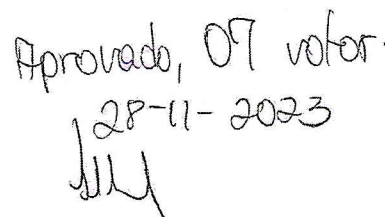 Aprovado, 07 votos.
28-11-2023